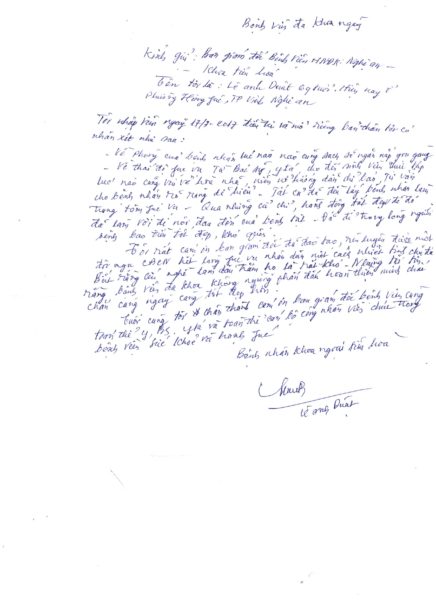 Bệnh viện đa khoa ngày
Kính gửi: Ban giám đốc Bệnh Viện HNĐK. Nghệ an -
- Khoa tiêu hoá
Tên tôi là: Lê anh Duật 69 tuổi. Hiện nay ở
Phường Hưng Phúc, TP Vinh Nghệ an
Tôi nhập viện ngày 17/7-2017 điều trị và mổ. Riêng bản thân tôi có
nhận xét như sau:
- Về Phòng của bệnh nhân lúc nào cũng sạch sẽ ngăn nắp gọn gàng
- Về thái độ phục vụ Từ Bác sỹ, y tá cho đến sinh viên thực tập
lúc nào cũng vui vẻ hoà nhã, niềm nở hướng dẫn chỉ bảo, tư vấn
cho bệnh nhân rõ ràng dễ hiểu - Tất cả để đều lấy bệnh nhân làm
trung tâm phục vụ - Qua những cử chỉ, hành động tốt đẹp đó đã
đã làm vơi đi nỗi đau đớn của bệnh tật - Để đi trong lòng người
bệnh bao tình tốt đẹp, khó quên.
Tôi rất cám ơn ban giám đốc đã đào tạo, rèn luyện được một
đội ngũ CBCN hết lòng phục vụ nhân dân một cách nhiệt tình chu đáo
Biết rằng cái nghề làm dâu trăm họ là rất khó - Nhưng tôi tin
rằng bệnh viện đa khoa không ngừng phấn đấu hoàn thiện mình chắc
chắn càng ngày càng tốt đẹp hơn.
Cuối cùng tôi chân thành cám ơn ban giám đốc bệnh viện cùng
toàn thể y, Bs, y tá và toàn thể cán bộ công nhân viên chức trong
bệnh viện sức khoẻ và hạnh phúc
Bệnh nhân khoa ngoại tiêu hoá
Lê anh Duật